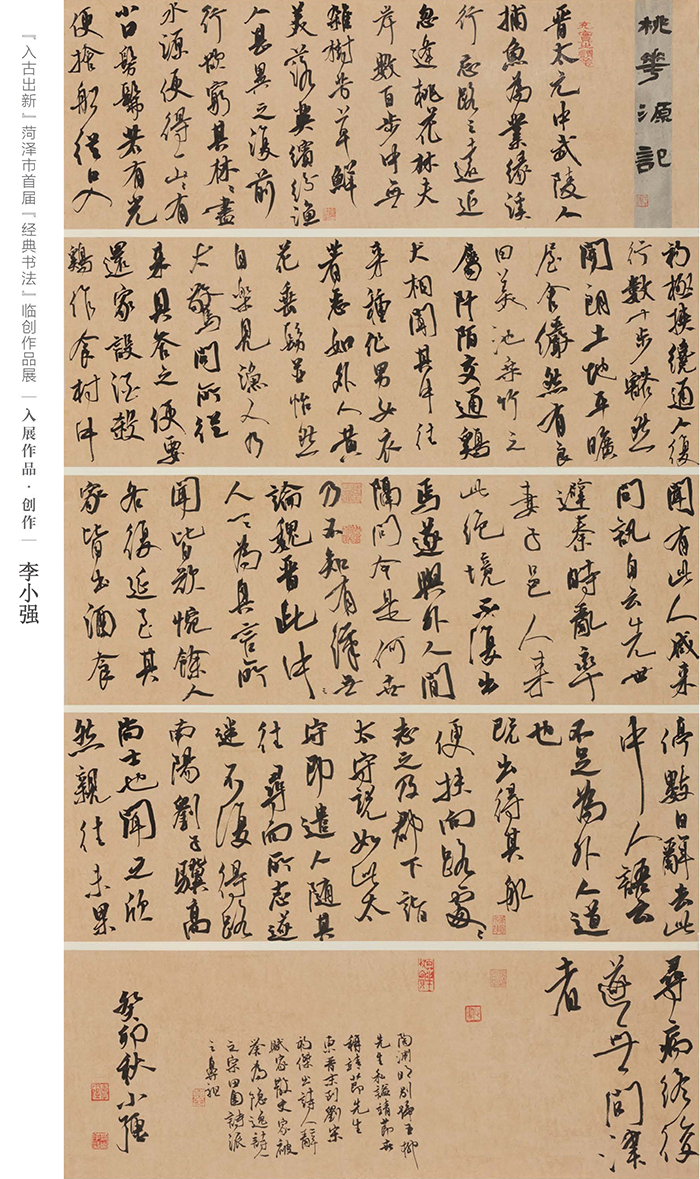 桃華源記
晋太元中武陵人
捕魚為業缘溪
行忘路之遠近
忽逢桃花林夹
岸數百步中無
雜樹芳草鮮
美落英缤紛渔
人甚異之復前
行欲窮其林〻盡
水源便得一山〻有
小口髣髴若有光
便捨船從口入
初極狭纔通人復
行數十步豁然
開朗土地平曠
屋舍儼然有良
田美池桑竹之
屬阡陌交通鷄
犬相聞其中往
来種作男女衣
著悉如外人黄
髮垂髫並怡然
自樂見漁人乃
大驚問所從
来具答之便要
還家設酒殺
鷄作食村中
聞有此人咸来
問訊自云先世
避秦時亂率
妻子邑人来
此绝境不復出
焉遂與外人間
隔問今是何世
乃不知有漢無〻
論魏晋此中
人一一為具言所
聞皆歎惋餘人
各復延至其
家皆出酒食
停數日辭去此
中人語云
不足為外人道
也
既出得其船
便扶向路處〻
志之及郡下詣
太守說如此太
守即遣人随其
往尋向所志遂
迷不復得路
南陽劉子驥高
尚士也聞之欣
然親往未果
尋病终後
遂無問津
者
陶渊明别號五柳
先生私謚靖節世
稱靖節先生
東晋末到劉宋
初傑出詩人辭
賦家散文家被
誉為隐逸詩人
之宗田園詩派
之鼻祖
癸卯秋小强
『入古出新』菏泽市首届『经典书法』临创作品展｜入展作品·创作｜李小强